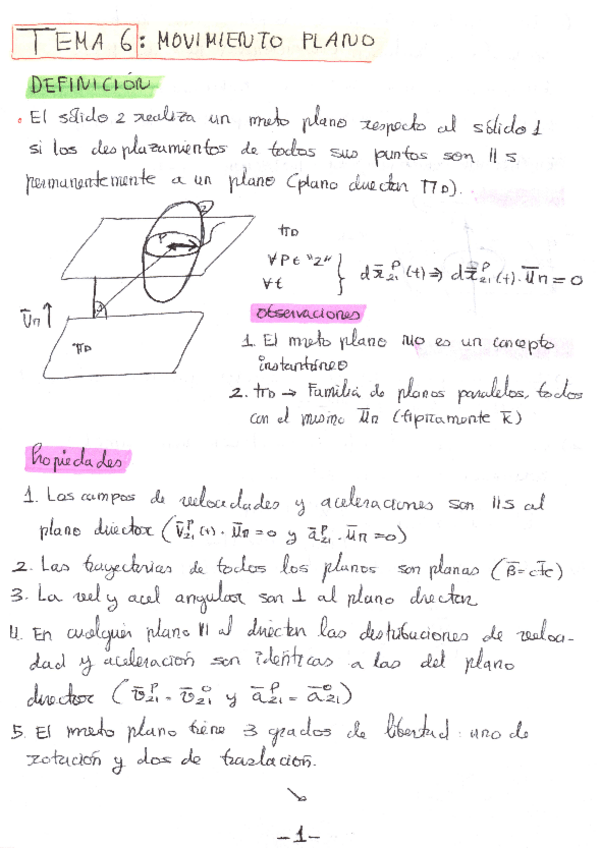 TEMA 6: MOVIMIENTO PLANO
DEFINICIÓN
. El sólido 2 realiza un mvto plano respecto al sólido 1
si los desplazamientos de todos sus puntos son ∥s
permanentemente a un plano (plano director ΠD).
2
P
πD
∀P∈ "2"
∀t
} dx̄₂₁ᴾ(t) ⇒ dx̄₂₁ᴾ(t)·ūn = 0
ūn ↑
πD
Observaciones
1. El mvto plano NO es un concepto
instantáneo
2. πD → Familia de planos paralelos, todos
con el mismo ūn (típicamente k̄)
Propiedades
1. Los campos de velocidades y aceleraciones son ∥s al
plano director (v̄₂₁ᴾ(t) · ūn = 0 y ā₂₁ᴾ · ūn = 0)
2. Las trayectorias de todos los planos son planas (B̄ = cte)
3. La vel y acel angular son ⊥ al plano director
4. En cualquier plano ∥ al director las distribuciones de veloci-
dad y aceleración son idénticas a las del plano
director (v̄₂₁ᴾ = v̄₂₁ᴼ y ā₂₁ᴾ = ā₂₁ᴼ)
5. El mvto plano tiene 3 grados de libertad: uno de
rotación y dos de traslación.
↘
-1-